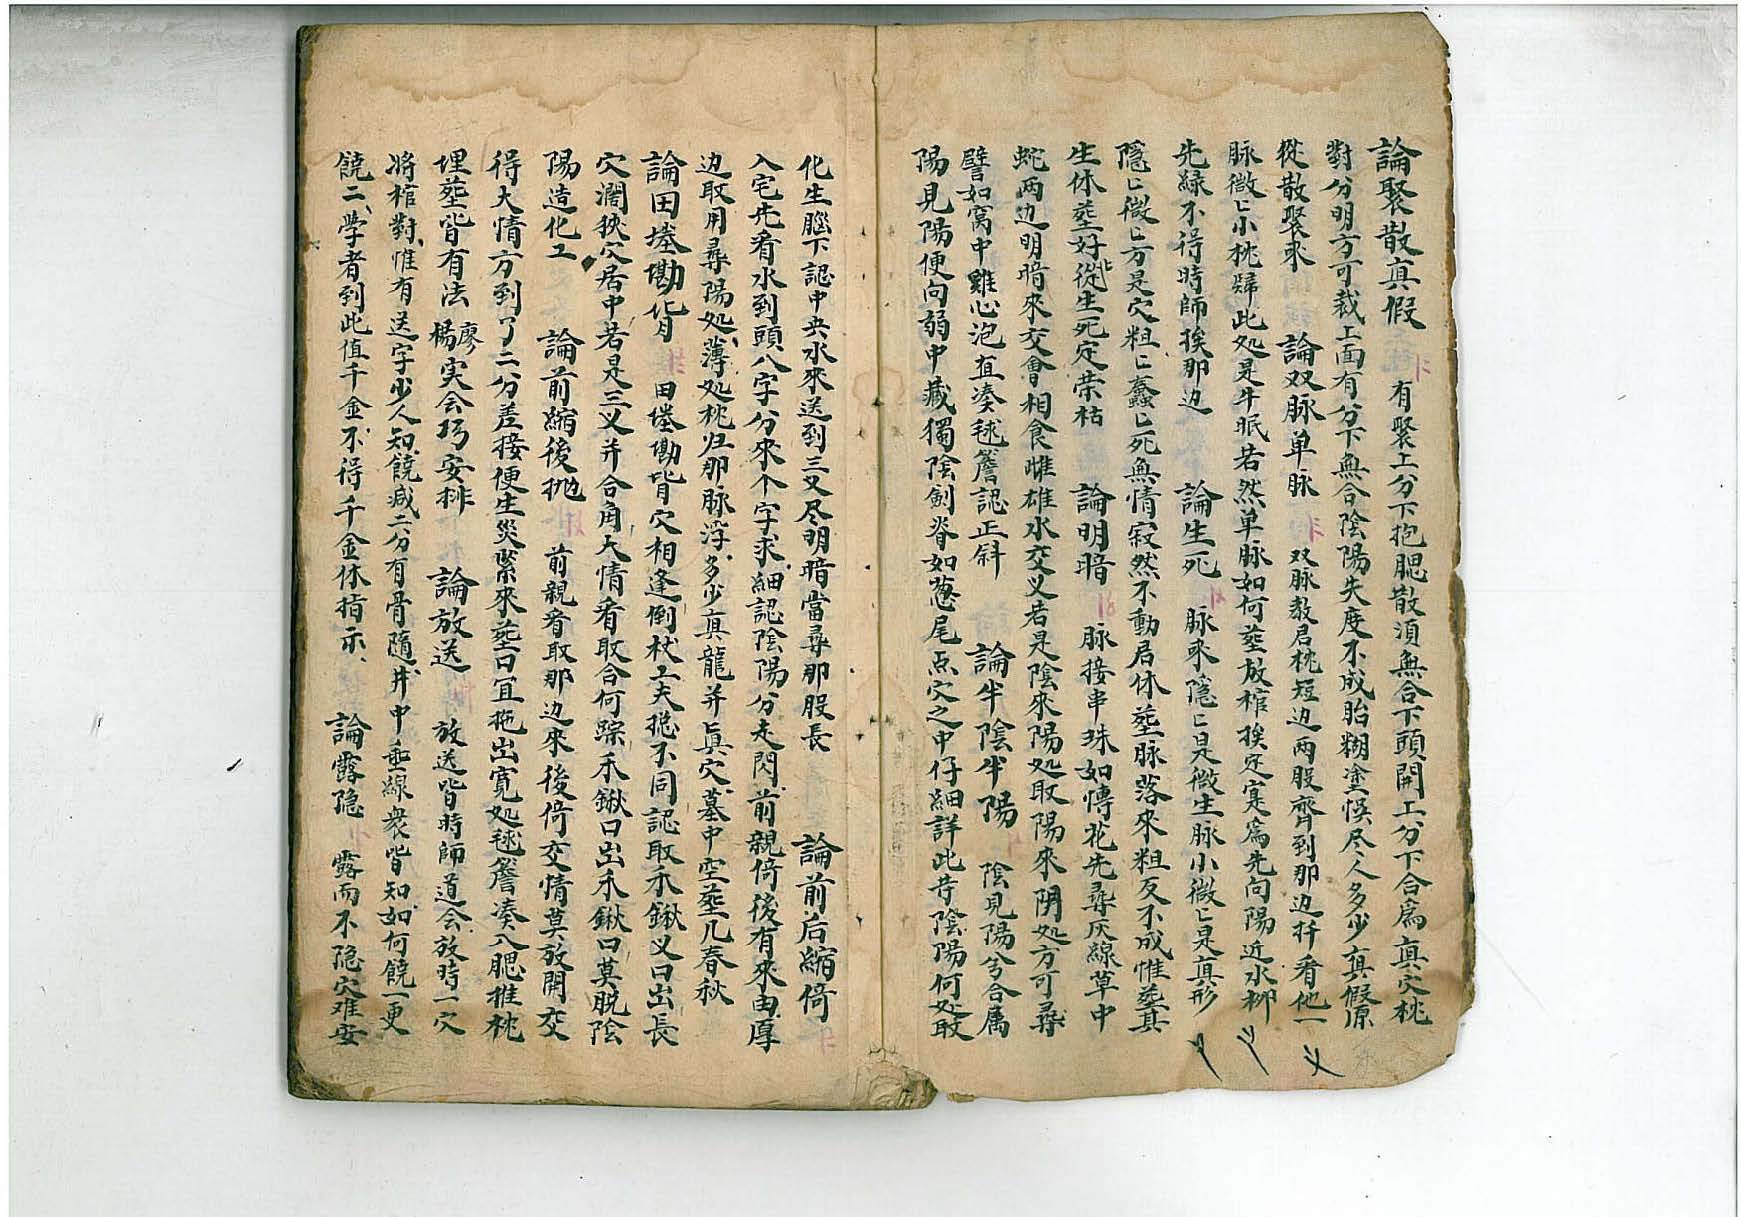 論聚散真假 有聚上分下抱腮散湏無合下頭開上分下合為真穴枕
對分明方可裁上面有分下無合陰陽失度不成胎糊塗悮尽人多少真假原
從散聚求 論双脉单脉 双脉教君枕短边兩股齊到那边扦看他一
脉微〻小枕歸此処是牛眠若然单脉如何葬放棺挨定寔為先向陽近水柳
先緑不得時師挨那边 論生死 脉來隱〻是微生脉小微〻是真形
隱〻微〻方是穴粗〻蠢〻死無情寂然不動君休葬脉落來粗反不成惟葬其
生休葬死好從生死定荣枯 論明暗 脉接串珠如慱花先尋灰線草中
蛇两边明暗來交會相食雌雄水交义若是陰來陽処取陽來阴処方可尋
譬如窩中雞心泡直凑毬簷認正斜 論半陰半陽 陰見陽兮合属
陽見陽便向弱中藏獨陰劍脊如葱尾点穴之中仔細詳此昔陰陽何処取
化生腦下認中央水來送到三义尽明暗當尋那股長 論前后縮倚
入宅先看水到頭八字分來个字求細認陰陽分走閃前親倚後有來由厚
边取用尋陽処薄処枕归那脉浮多少真龍并眞穴墓中空葬几春秋
論田塂墈背 田塂墈背穴相逢倒杖工夫揔不同認取禾鍬义口出長
穴濶狹穴居中若是三义并合角大情看取合何踪禾鍬口出禾鍬口莫脱陰
陽造化工 論前縮後抛 前親看取那边來後倚交情莫放開交
得大情方到了二分差接便生災緊來葬口宜拖出寬処毬簷凑入腮推枕
埋葬皆有法楊廖实会巧安排 論放送 放送皆時師道会放時一穴
將棺對惟有送字少人知饒减二分有骨隨井中垂線衆皆知如何饒一更
饒二學者到此值千金不得千金休指示 論露隐 露而不隐穴难安